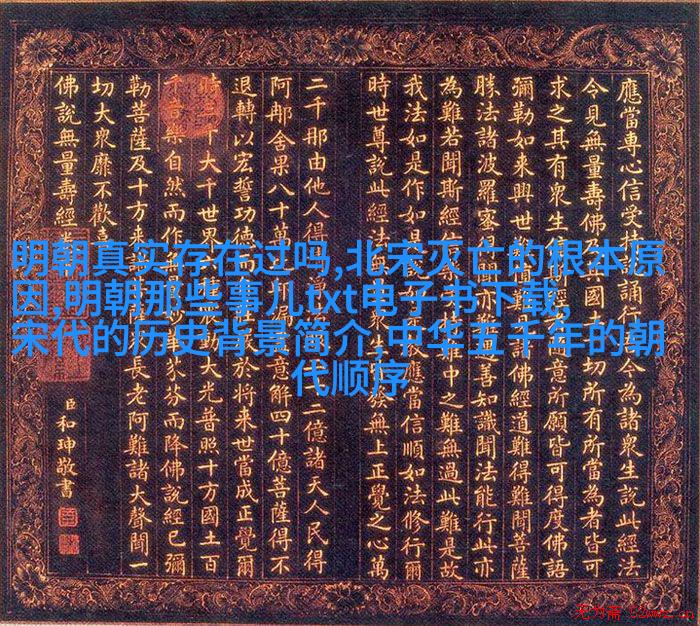 應當專心信受持誦行今為諸眾生說此經法
今見無量壽佛及國土切所有所當為者皆可
求之其有眾生意所願皆可得度佛語
彌勒如來興世難諸佛經道難得難聞菩薩
勝法諸波羅蜜亦難善知識聞法能行此亦
為難若聞斯經持難中之難無過此難是故
我法如是作如是教應當信順如法修行爾
時世尊說此經法眾生發無上正覺之心萬
二千那由他人得二億諸天人民得
阿那舍果八十萬意解四十億菩薩得不
退轉以宏誓功德而於將來世當成正覺爾
大千世界動大光普照十方國土百
音樂自然而作華芬而降佛說經已彌
勒菩薩及十方來長老阿難諸大聲聞一
切大眾靡不歡
佛說無量壽經
臣和珅敬書
明朝真实存在过吗,北宋灭亡的根本原
因,明朝那些事儿txt电子书下载,
宋代的历史背景简介,中华五千年的朝
代顺序